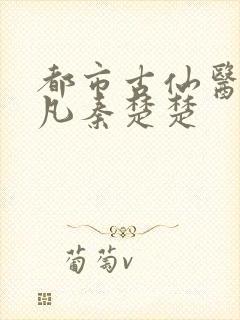 都市古仙醫
凡秦楚楚
葡萄v